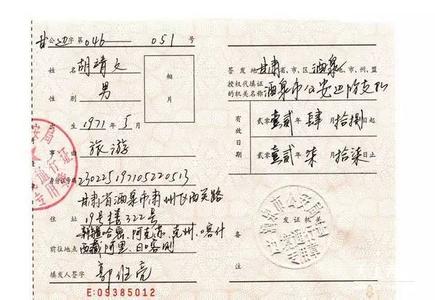 甘公边字第046 051号
姓名 胡靖文
相片
性别 男
出生 1971年5月
事由 旅游
身份证号码 230225197105220513
甘肃省酒泉市肃州区西关路
住址 19号楼322号
新疆哈密、阿克苏、克州、喀什
前往地点 西藏阿里、日口客则
填发人签字
E:09385012
签发地 甘肃省、市、区 酒泉 地、市、州、盟
授权代填证的机关名称 酒泉市公安边防支队
有效日期
贰零壹贰年肆月拾捌日起
贰零壹贰年柒月拾柒日止
备注
发证机关
专用章